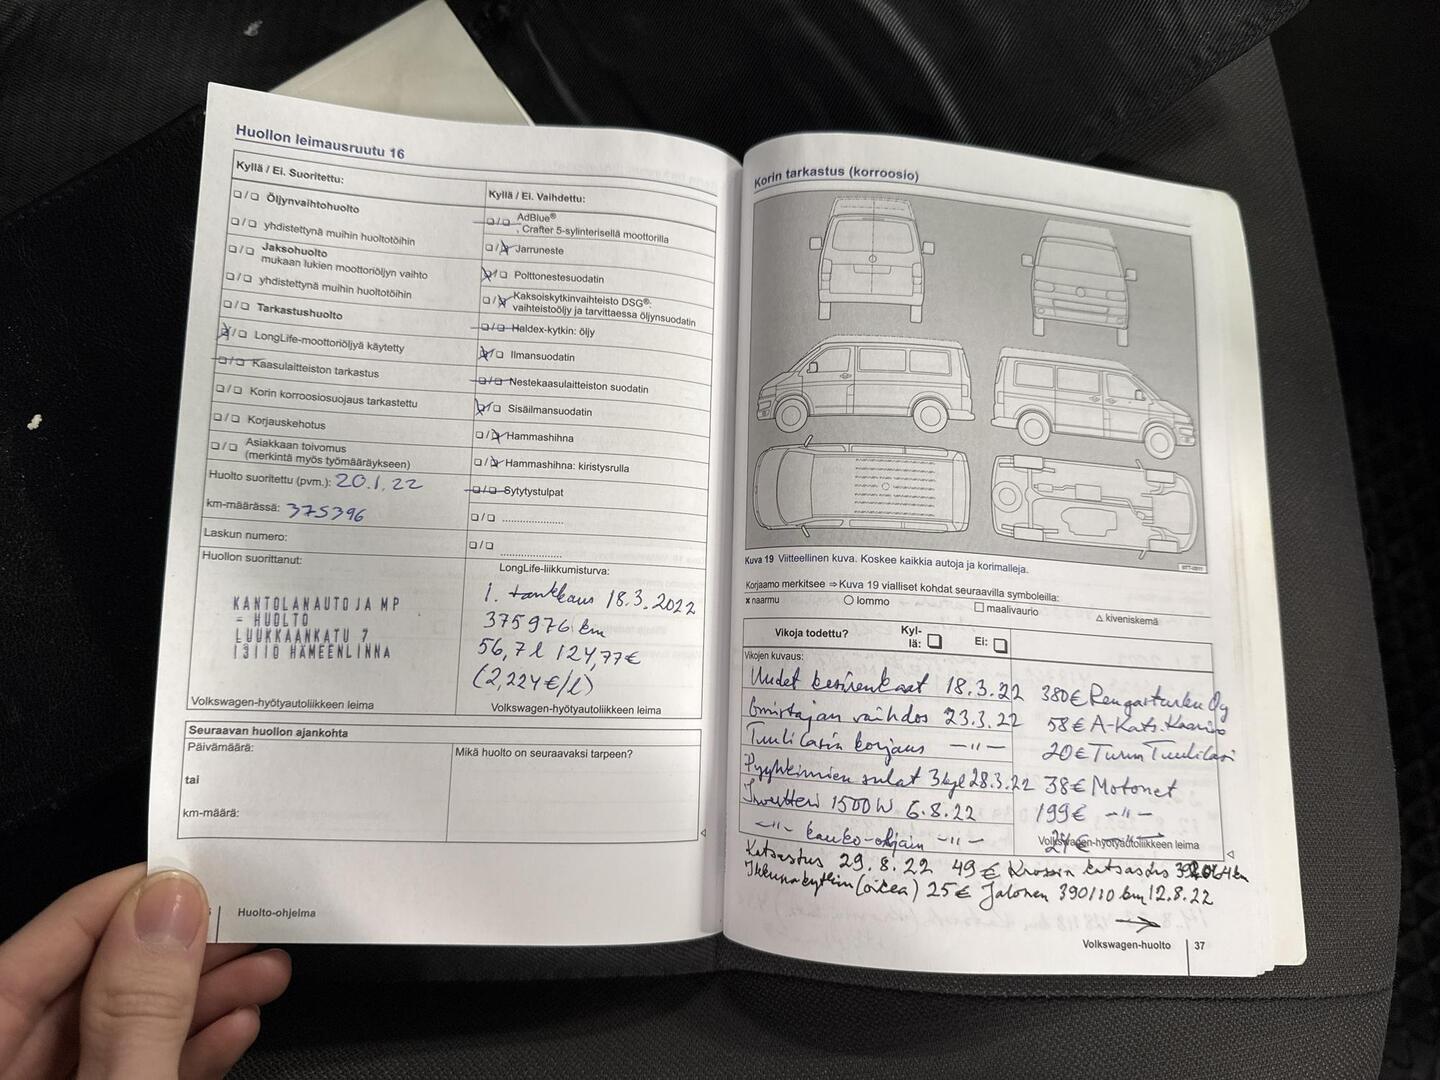 Huollon leimausruutu 16
Kyllä / Ei. Suoritettu:
❏/❏ Öljynvaihtohuolto
❏/❏ yhdistettynä muihin huoltotöihin
❏/❏ Jaksohuolto
mukaan lukien moottoriöljyn vaihto
❏/❏ yhdistettynä muihin huoltotöihin
❏/❏ Tarkastushuolto
❏/❏ LongLife-moottoriöljyä käytetty
❏/❏ Kaasulaitteiston tarkastus
❏/❏ Korin korroosiosuojaus tarkastettu
❏/❏ Korjauskehotus
❏/❏ Asiakkaan toivomus
(merkintä myös työmääräykseen)
Huolto suoritettu (pvm.): 20.1.22
km-määrässä: 375396
Laskun numero:
Huollon suorittanut:
KANTOLANAUTO JA MP
- HUOLTO
LUUKKAANKATU 7
13110 HÄMEENLINNA
Volkswagen-hyötyautoliikkeen leima
Kyllä / Ei. Vaihdettu:
❏/❏ AdBlue®
Crafter 5-sylinterisellä moottorilla
❏/❏ Jarruneste
❏/❏ Polttonestesuodatin
❏/❏ Kaksoiskytkinvaihteisto DSG®:
vaihteistoöljy ja tarvittaessa öljynsuodatin
❏/❏ Haldex-kytkin: öljy
❏/❏ Ilmansuodatin
❏/❏ Nestekaasulaitteiston suodatin
❏/❏ Sisäilmansuodatin
❏/❏ Hammashihna
❏/❏ Hammashihna: kiristysrulla
❏/❏ Sytytystulpat
❏/❏ .....................
❏/❏ .....................
LongLife-liikkumisturva:
1. tankkaus 18.3.2022
375976 km
56,7l 124,77€
(2,224€/l)
Volkswagen-hyötyautoliikkeen leima
Seuraavan huollon ajankohta
Päivämäärä:
tai
km-määrä:
Mikä huolto on seuraavaksi tarpeen?
Huolto-ohjelma
Korin tarkastus (korroosio)
Kuva 19 Viitteellinen kuva. Koskee kaikkia autoja ja korimalleja.
Korjaamo merkitsee ⇒ Kuva 19 vialliset kohdat seuraavilla symboleilla:
x naarmu ○ lommo □ maalivaurio △ kiveniskemä
Vikoja todettu? Kyl-
lä: ❏ Ei: ❏
Vikojen kuvaus:
Uudet kesärenkaat 18.3.22 380€ Rengasturku Oy
Omistajan vaihdos 23.3.22 58€ A-Kats. Kaarina
Tuulilasin korjaus —"— 20€ Turun Tuulilasi
Pyyhkimien sulat 3kpl 28.3.22 38€ Motonet
Invertteri 1500W 6.8.22 199€ —"—
—"— kauko-ohjain —"— €
Volkswagen-hyötyautoliikkeen leima
Katsastus 29.8.22 49€ katsastus km
Ikkunakytkin (oikea) 25€ Jalonen 390110 km 12.8.22
→
Volkswagen-huolto 37